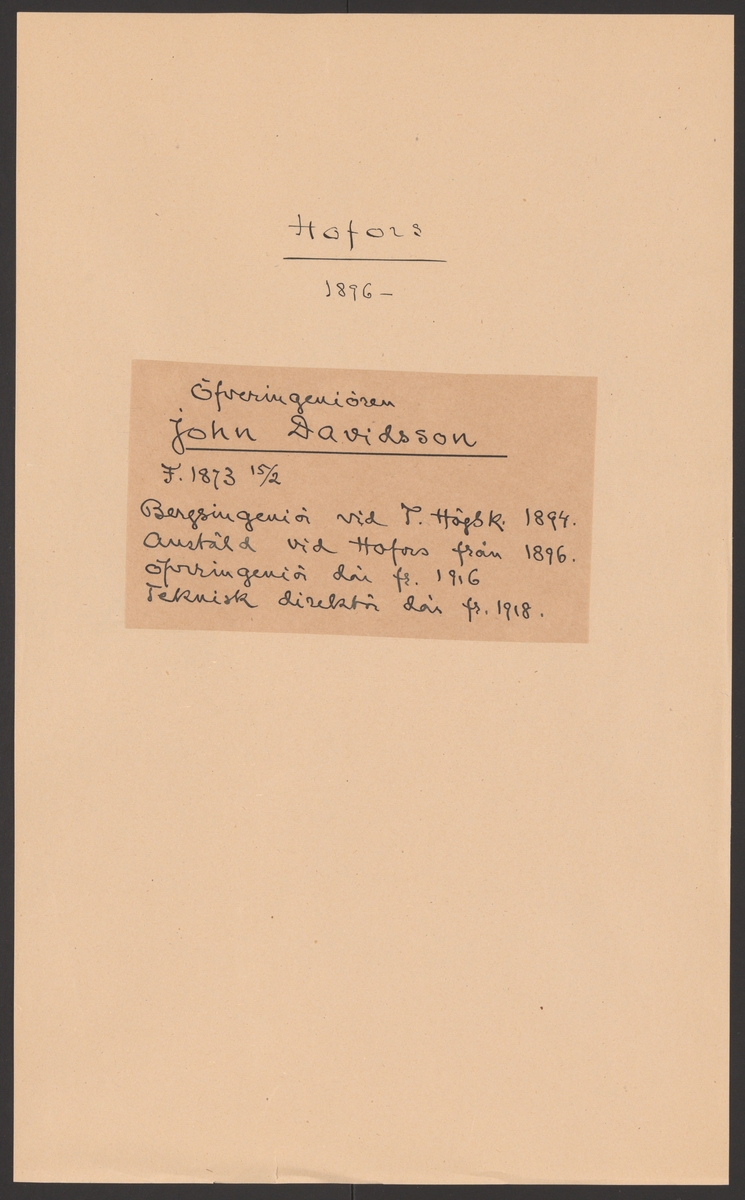 Hofors
1896–
Öfveringeniören
John Davidsson
F. 1873 15/2
Bergsingeniör vid T. Högsk. 1894.
Anstäld vid Hofors från 1896.
Öfveringeniör där fr. 1916
Teknisk direktör där fr. 1918.